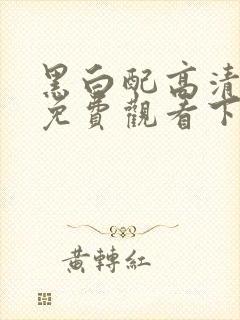 黑白配高清
免費觀看下
黃轉紅